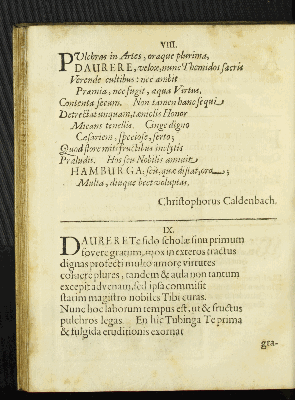 VIII.
PUlchras in Artes, oraque plurima,
DAURERE, velox, nunc Themidos sacris
Verende cultibus: nec ambit
Præmia, nec fugit, aqua Virtus,
Contenta secum. Non tamen hanc sequi
Detrectat unquam, tam celis Honor
Micans tenellis. Cinge digno
Cæsariem, speciose, serto;
Quod flore mitis fructibus inclytis
Præludit. Hos seu Nobilis annuit
HAMBURGA; seu, quæ distat, ora;
Multa, diuque beet voluptas.
Christophorus Caldenbach.
IX.
DAURERE Te fido scholæ sinu primum
fovere gratum, mox in exteros tractus
dignas profecti multo amore virtutes
colüere plures, tandem & aula non tantum
excepit advenam, sed ipsa commisit
statim magistro nobiles Tibi curas.
Nunc hoc laborum tempus est, ut & fructus
pulchros legas. En hic Tubinga Te prima
& fulgida eruditionis exornat
gra-